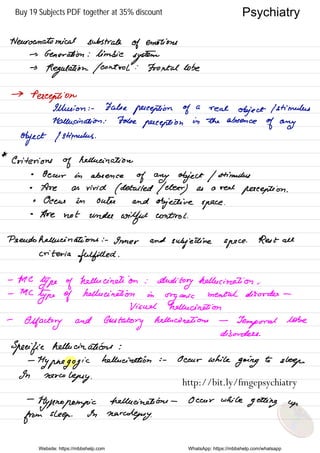 Buy 19 Subjects PDF together at 35% discount
Psychiatry
Neuroanatomical substrate of emotions
→ Generation : limbic system
→ Regulation / control : Frontal lobe
→ Perception
Illusion :- False perception of a real object / stimulus
Hallucination : False perception in the absence of any
object / stimulus.
* Criterions of hallucination
• Occur in absence of any object / stimulus
• Are as vivid (detailed / clear) as a real perception.
• Occurs in outer and objective space.
• Are not under wilful control.
Pseudohallucinations :- Inner and subjective space. Rest all
criteria fulfilled.
- MC type of hallucination : Auditory hallucination.
- MC type of hallucination in organic mental disorder —
Visual hallucination
- Olfactory and Gustatory hallucinations — Temporal lobe
disorders.
Specific hallucinations :
- Hypnagogic hallucination :- Occur while going to sleep
In narcolepsy.
http://bit.ly/fmgepsychiatry
- Hypnopompic hallucinations - Occur while getting up
from sleep. In narcolepsy
Website: https://mbbshelp.com
WhatsApp: https://mbbshelp.com/whatsapp